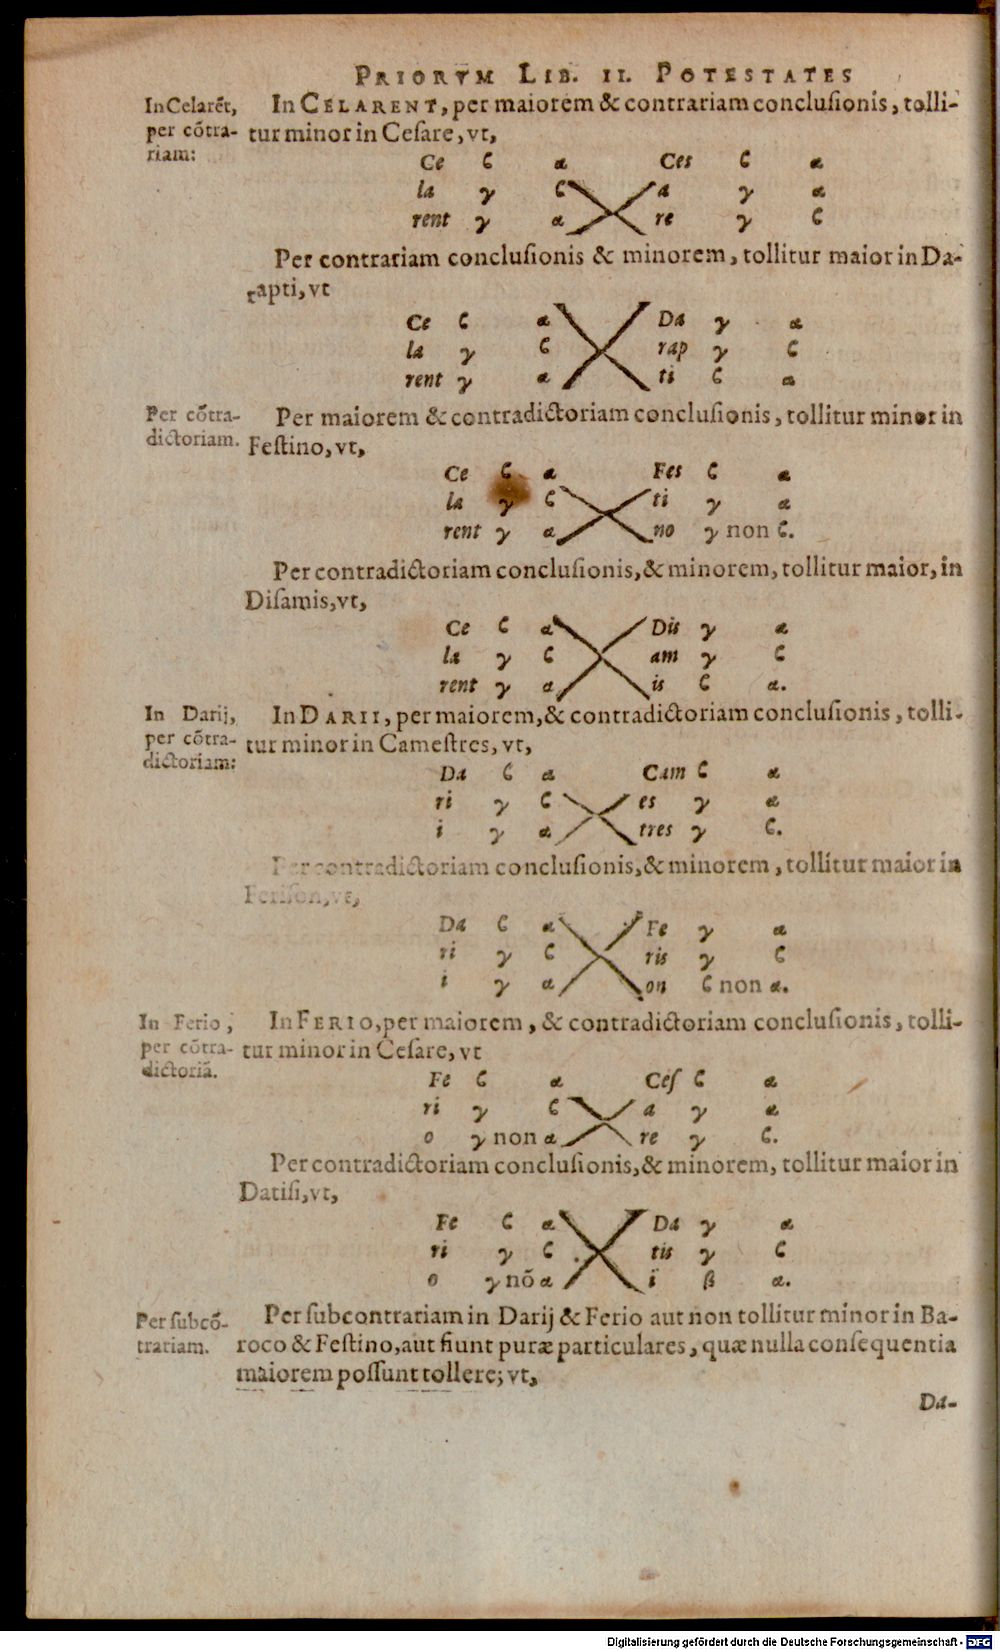 PRIORVM LIB. II. POTESTATES
In Celarẽt,
per cõtra-
riam:
In CELARENT, per maiorem & contrariam conclusionis, tolli-
tur minor in Cesare, vt,
Ce ϐ α Ces ϐ α
la γ ϐ a γ α
rent γ α re γ ϐ
Per contrariam conclusionis & minorem, tollitur maior in Da-
rapti, vt
Ce ϐ α Da γ α
la γ ϐ rap γ ϐ
rent γ α ti ϐ α
Per cõtra-
dictoriam.
Per maiorem & contradictoriam conclusionis, tollitur minor in
Festino, vt,
Ce ϐ α Fes ϐ α
la γ ϐ ti γ α
rent γ α no γ non ϐ.
Per contradictoriam conclusionis, & minorem, tollitur maior, in
Disamis, vt,
Ce ϐ α Dis γ α
la γ ϐ am γ ϐ
rent γ α is ϐ α.
In Darij,
per cõtra-
dictoriam:
In DARII, per maiorem, & contradictoriam conclusionis, tolli-
tur minor in Camestres, vt,
Da ϐ α Cam ϐ α
ri γ ϐ es γ α
i γ α tres γ ϐ.
Per contradictoriam conclusionis, & minorem, tollitur maior in
Ferison, vt,
Da ϐ α Fe γ α
ri γ ϐ ris γ ϐ
i γ α on ϐ non α.
In Ferio,
per cõtra-
dictoriã.
In FERIO, per maiorem, & contradictoriam conclusionis, tolli-
tur minor in Cesare, vt
Fe ϐ α Ceſ ϐ α
ri γ ϐ a γ α
o γ non α re γ ϐ.
Per contradictoriam conclusionis, & minorem, tollitur maior in
Datisi, vt,
Fe ϐ α Da γ α
ri γ ϐ tis γ ϐ
o γ nõ α i β α.
Per subcõ-
trariam.
Per subcontrariam in Darij & Ferio aut non tollitur minor in Ba-
roco & Festino, aut fiunt puræ particulares, quæ nulla consequentia
maiorem possunt tollere; vt,
Da-
Digitalisierung gefördert durch die Deutsche Forschungsgemeinschaft - DFG